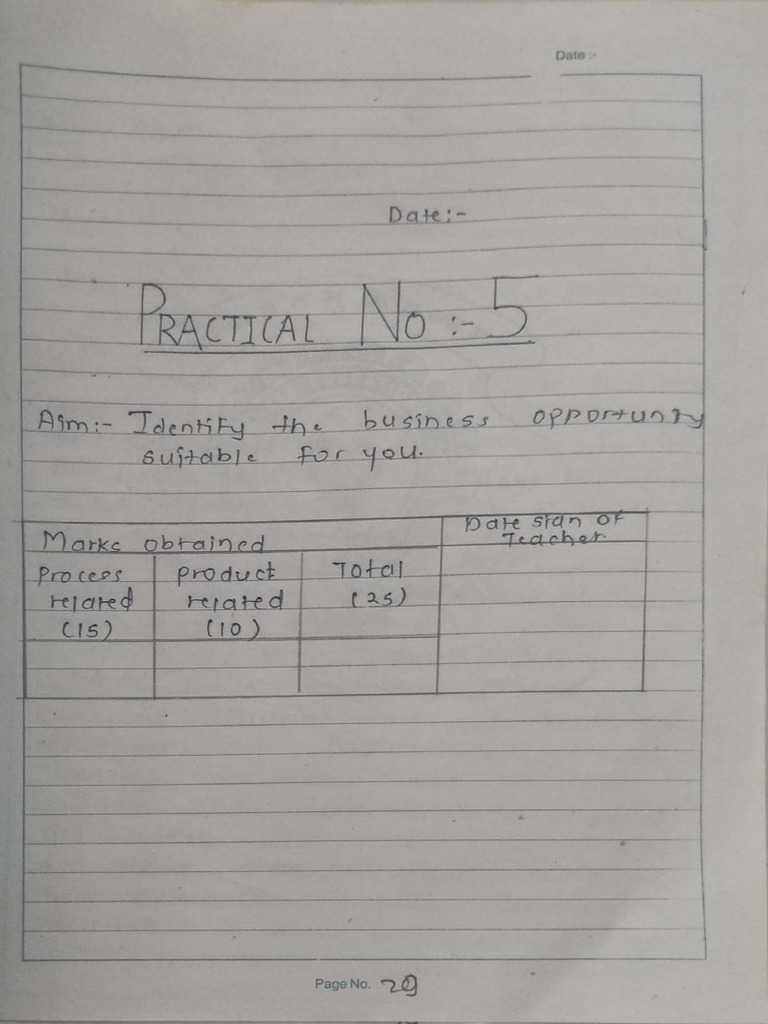 Date :-
Date:-
PRACTICAL No :- 5
Aim:- Identify the business opportunity
suitable for you.
Marks obtained
Date sign of
Teacher
Process
related
(15)
product
related
(10)
Total
(25)
Page No. 29